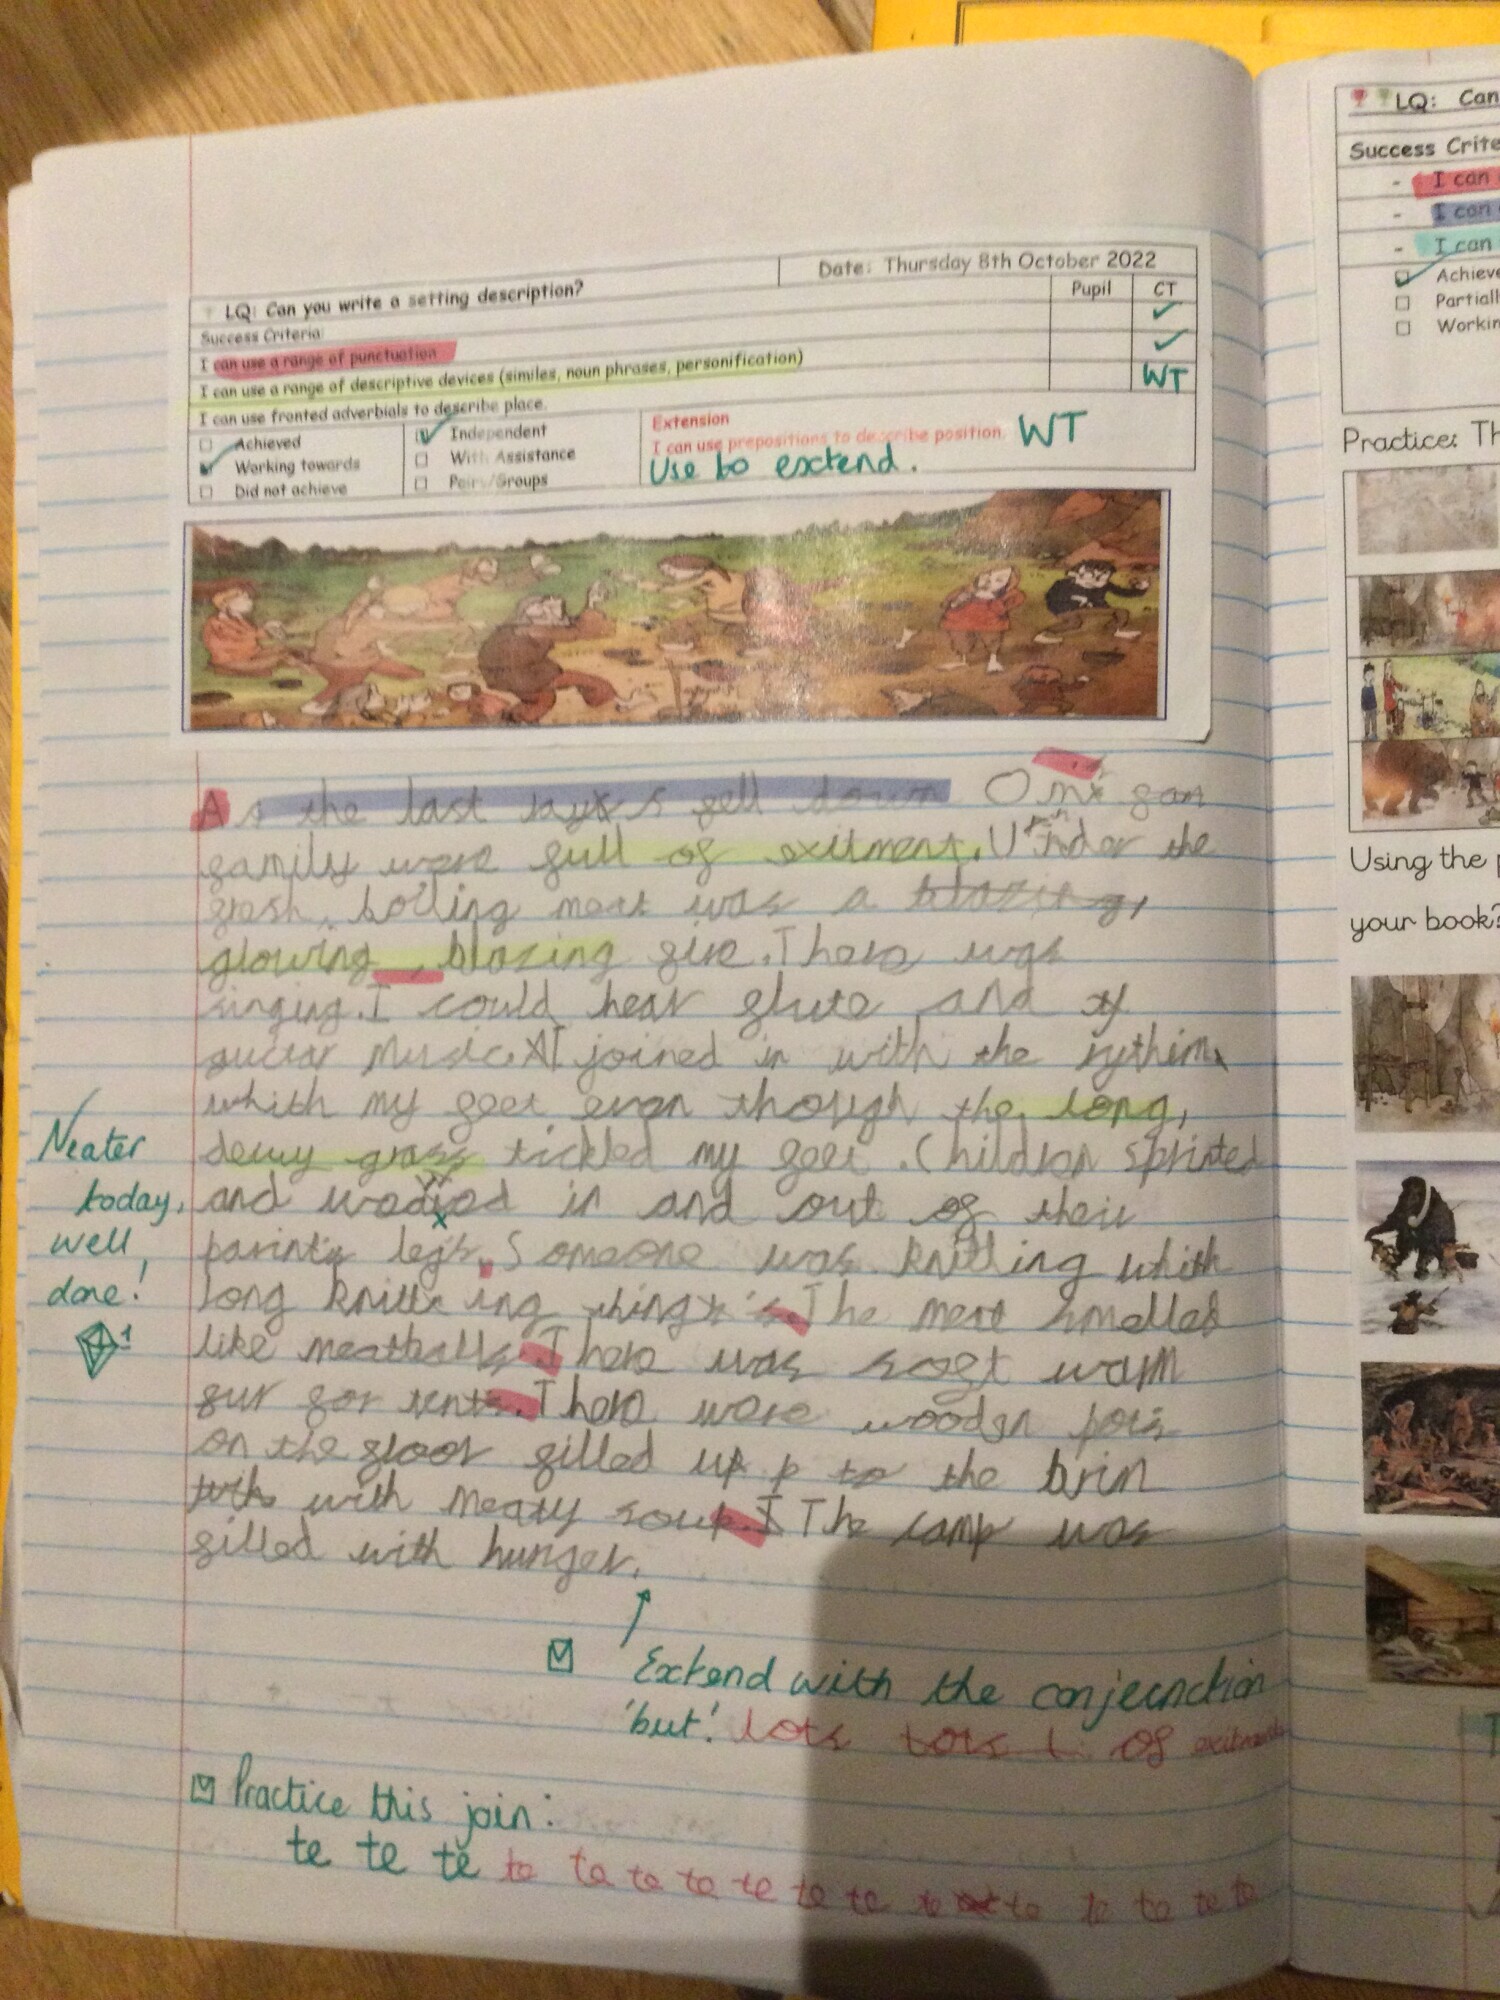 Date: Thursday 8th October 2022
LQ: Can you write a setting description?
Pupil
CT
Success Criteria:
I can use a range of punctuation
I can use a range of descriptive devices (similes, noun phrases, personification)
WT
I can use fronted adverbials to describe place.
Achieved
Working towards
Did not achieve
Independent
With Assistance
Pairs/Groups
Extension
I can use prepositions to describe position. WT
Use to extend.
As the last rays fell down Om's
family were full of exitment. Under the
fresh, boiling meat was a blazing,
glowing, blazing fire. There was
singing. I could hear flute and
guitar music. I joined in with the rythim
whith my feet even though the long,
dewy grass tickled my feet. Children sprinted
and in and out of their
parints legs. Someone was knitting whith
long knitting things. The meat smelled
like meatballs. There was soft warm
fur for tents. There were wooden pots
on the floor filled up to the brim
with meaty soup. The camp was
filled with hunger.
Neater
today,
well
done!
1
Extend with the conjecnction
'but'. lots of
Practice this join:
te te te te te te te te te te te te te te te
LQ: Can
Success Crite
- I can
- I can
- I can
Achieve
Partiall
Workin
Practice: Th
Using the p
your book?